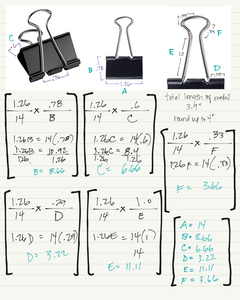 C
.6
.78
B
.78
A
1.26
.33
1.0
E
F
D
.29
total length of metal
3.9"
round up to 4"
1.26 x .78
14 B
1.26B = 14(.78)
1.26B = 10.92
1.26 1.26
B = 8.66
1.26 x .6
14 C
1.26C = 14(.6)
1.26C = 8.4
1.26 1.26
C = 6.66
1.26 x .33
14 F
1.26F = 14(.33)
F = 3.66
1.26 x .29
14 D
1.26D = 14(.29)
D = 3.22
1.26 x 1.0
14 E
1.26E = 14(1)
14
E = 11.11
A = 14
B = 8.66
C = 6.66
D = 3.22
E = 11.11
F = 3.66